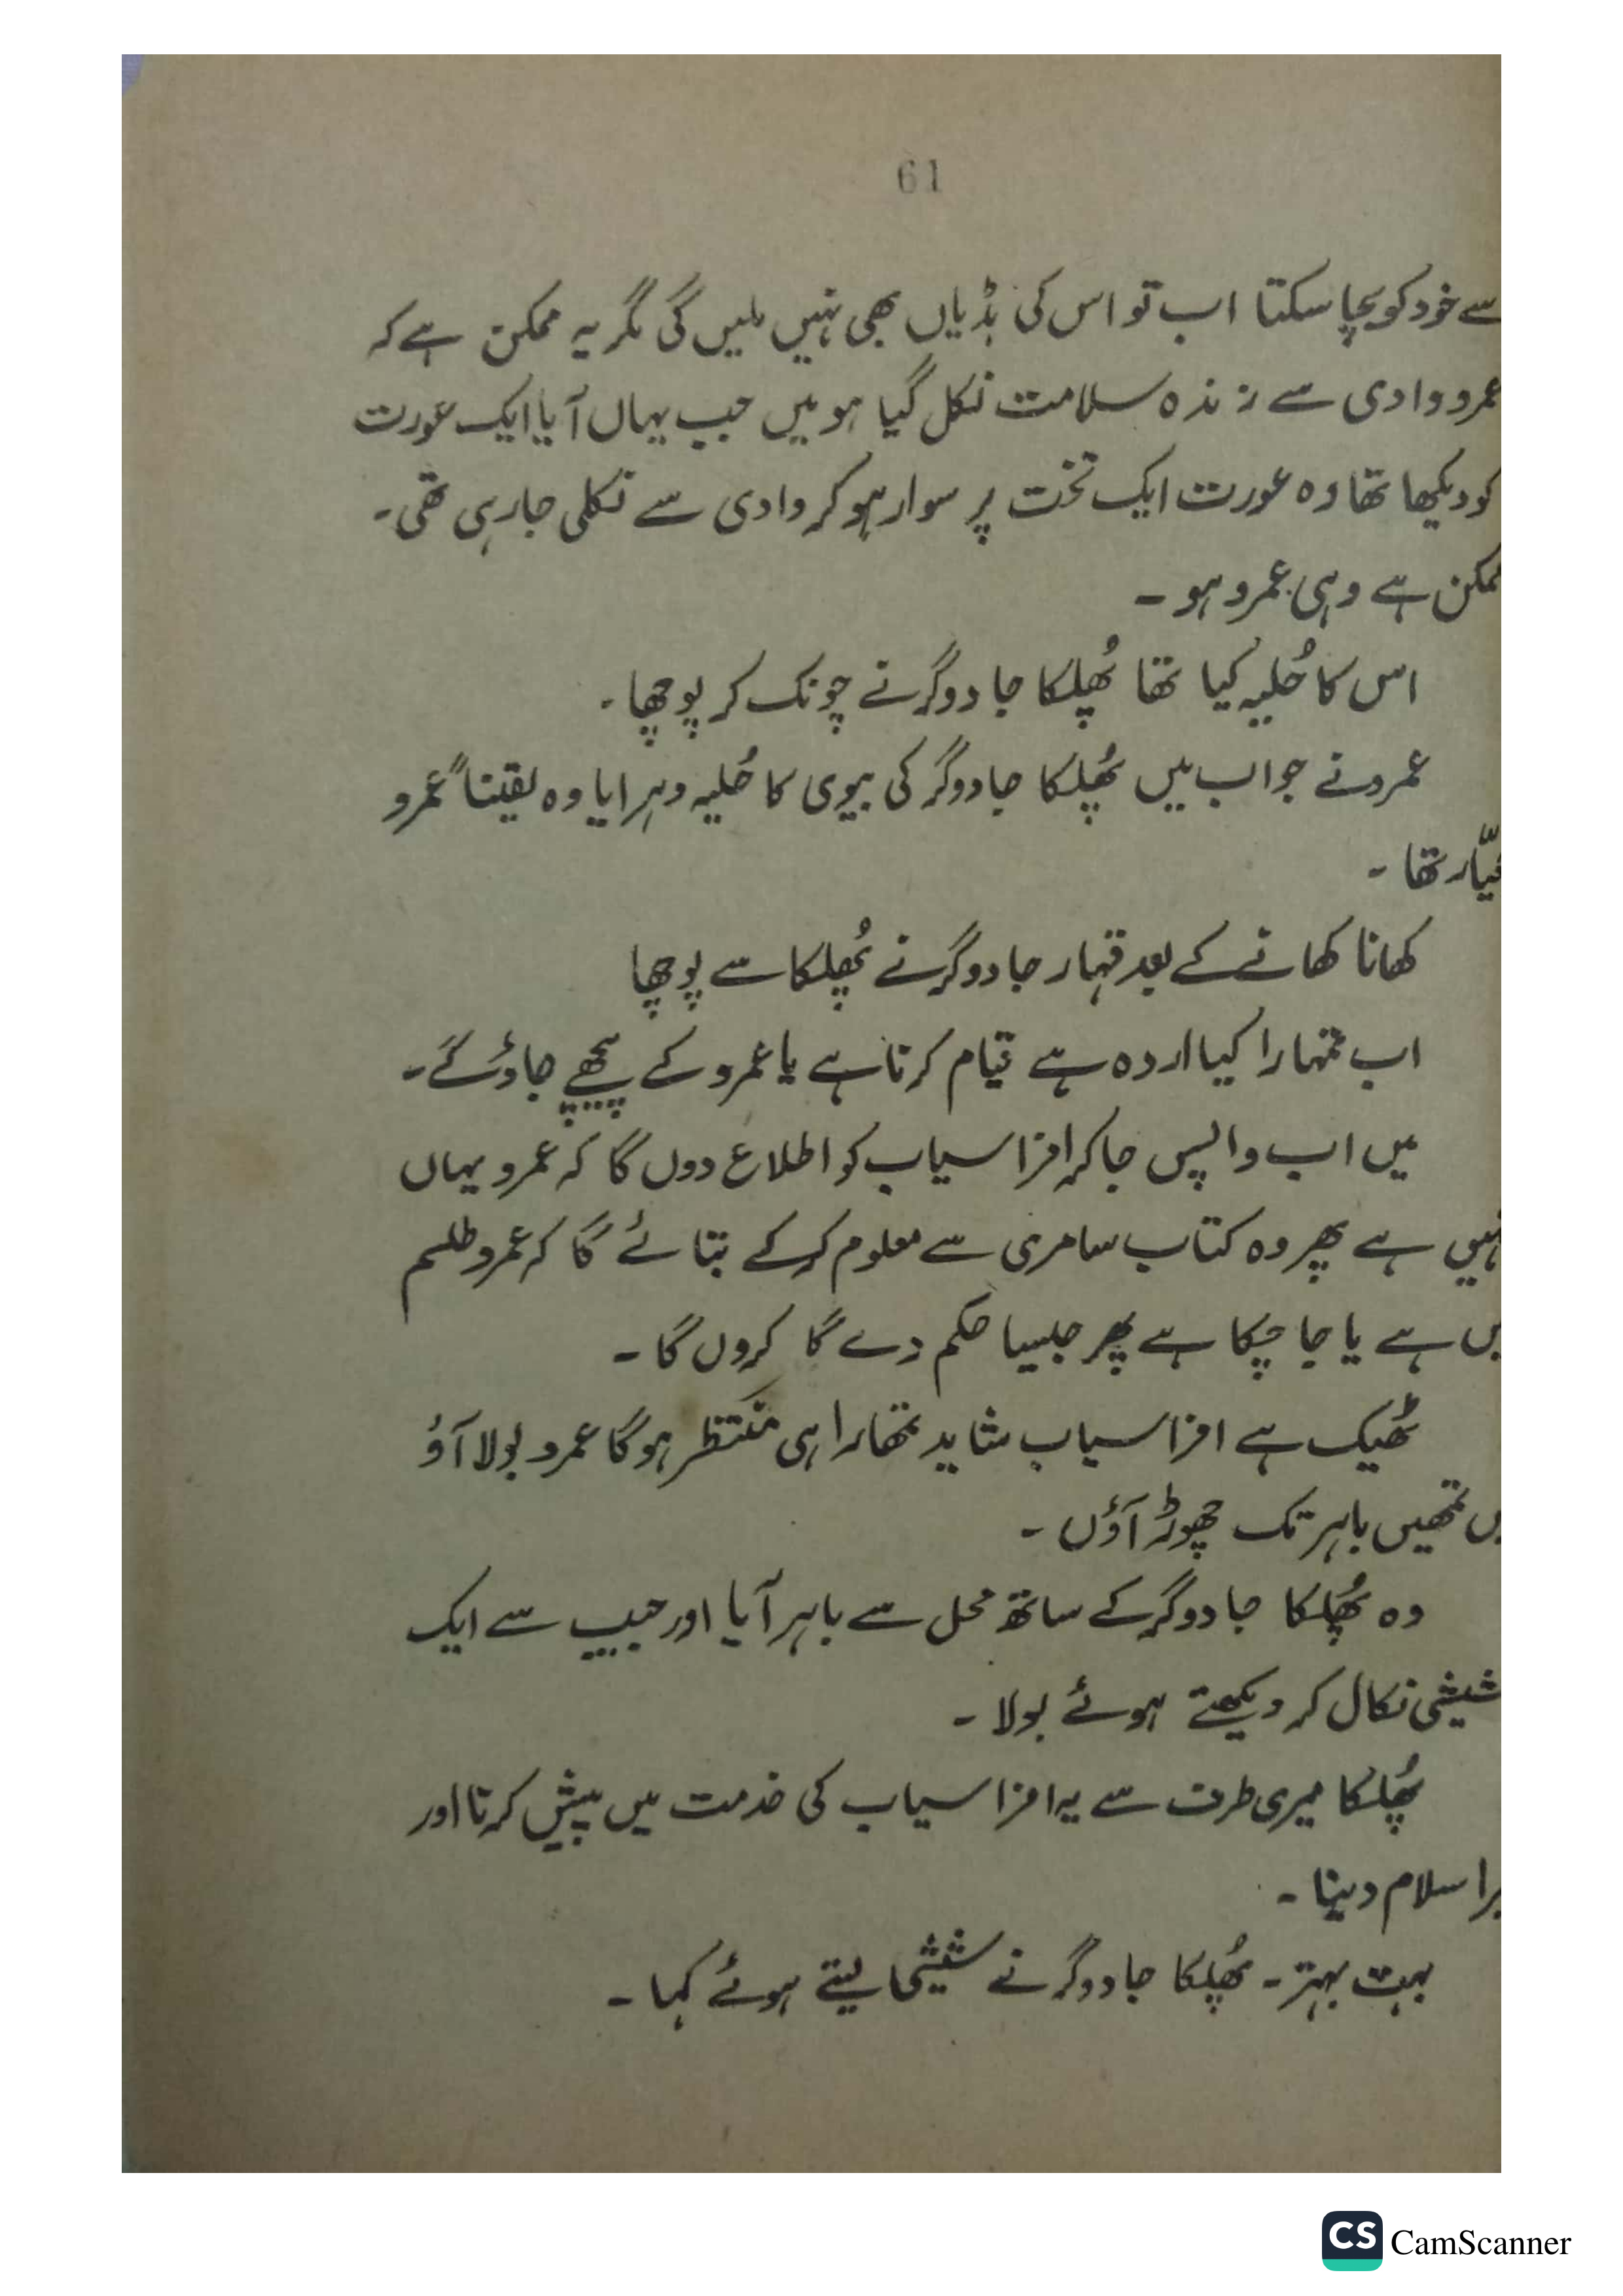 61
سے خود کو بچا سکتا اب تو اس کی ہڈیاں بھی نہیں ملیں گی مگر یہ ممکن ہے کہ
عمرو وادی سے زندہ سلامت نکل گیا ہو میں جب یہاں آیا ایک عورت
کو دیکھا تھا وہ عورت ایک تخت پر سوار ہو کر وادی سے نکلی جا رہی تھی۔
ممکن ہے وہی عمرو ہو۔
اس کا حُلیہ کیا تھا پُھلکا جادوگر نے چونک کر پوچھا۔
عمرو نے جواب میں پُھلکا جادوگر کی بیوی کا حُلیہ دہرایا وہ یقیناً عمرو
عیّار تھا۔
کھانا کھانے کے بعد قہار جادوگر نے پُھلکا سے پوچھا
اب تمہارا کیا اردہ ہے قیام کرنا ہے یا عمرو کے پیچھے جاؤ گے۔
میں اب واپس جا کر افراسیاب کو اطلاع دوں گا کہ عمرو یہاں
نہیں ہے پھر وہ کتاب سامری سے معلوم کر کے بتائے گا کہ عمرو طلسم
میں ہے یا جا چکا ہے پھر جیسا حکم دے گا کروں گا۔
ٹھیک ہے افراسیاب شاید تمھارا ہی منتظر ہو گا عمرو بولا آؤ
میں تمھیں باہر تک چھوڑ آؤں۔
وہ پُھلکا جادوگر کے ساتھ محل سے باہر آیا اور جیب سے ایک
شیشی نکال کر دیکھتے ہوئے بولا۔
پُھلکا میری طرف سے یہ افراسیاب کی خدمت میں پیش کرنا اور
میرا سلام دینا۔
بہت بہتر۔ پُھلکا جادوگر نے شیشی لیتے ہوئے کہا۔
CS CamScanner